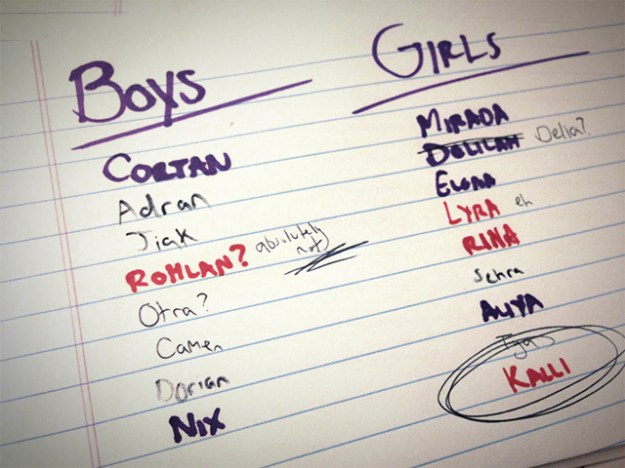 Boys
CORTAN
Adran
Jiak
ROHLAN? absolutely not
Otra?
Camen
Dorian
NIX
GIRLS
MIRADA
DELILAH Delia?
LYRA eh
RINA
Sehra
ALIYA
KALLI